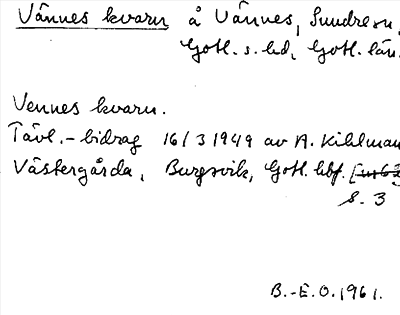 Vännes kvarn å Vännes, Sundre sn,
Gotl. s. hd, Gotl. län.
Vennes kvarn.
Tävl.-bidrag 16/3 1949 av A. Kihlman
Västergårda, Burgsvik, Gotl. hbf.
S. 3
B.-E.O. 1961.